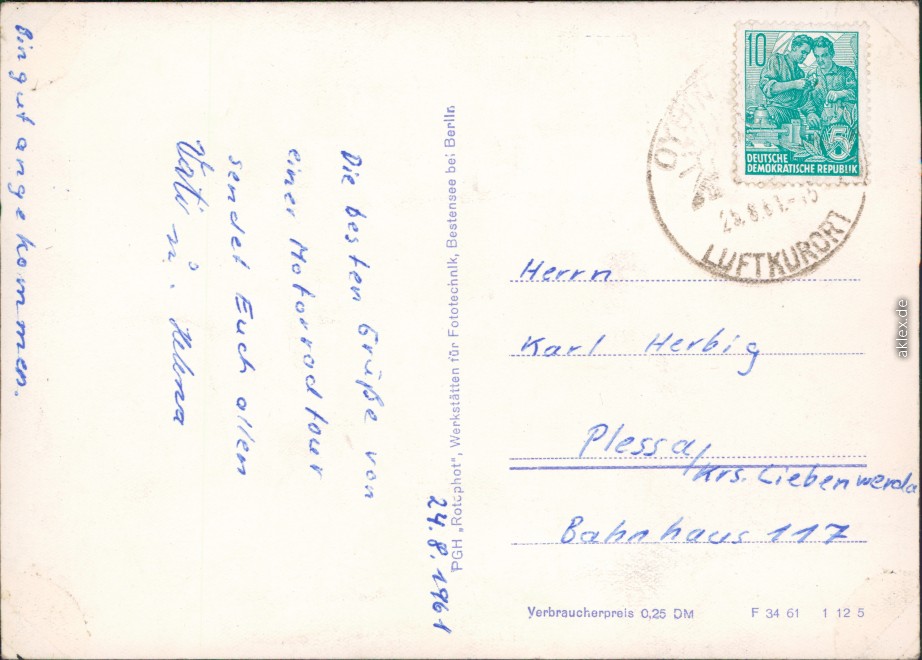 24.8.1961
Die besten Grüße von
einer Motorradtour
sendet Euch allen
Vati u. Helena
Bin gut angekommen.
PGH „Rotophot“, Werkstätten für Fototechnik, Bestensee bei Berlin
10
5
DEUTSCHE
DEMOKRATISCHE REPUBLIK
OYBIN
LUFTKURORT
Herrn
Karl Herbig
Plessa/
Krs. Liebenwerda
Bahnhaus 117
Verbraucherpreis 0,25 DM F 34 61 1 12 5
aklex.de